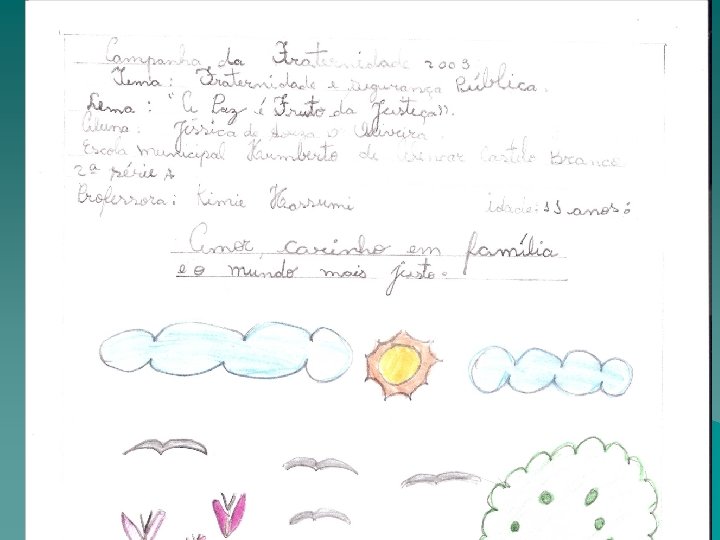 Campanha da Fraternidade 2003
Tema: Fraternidade e segurança Pública.
Lema: "A Paz é Fruto da Justiça".
Aluna: Jéssica de Souza O Oliveira.
Escola municipal Humberto de Alencar Castelo Branco
2ª série A
Professora: Kimie Hassumi idade: 11 anos
Amor, carinho em família
e o mundo mais justo.